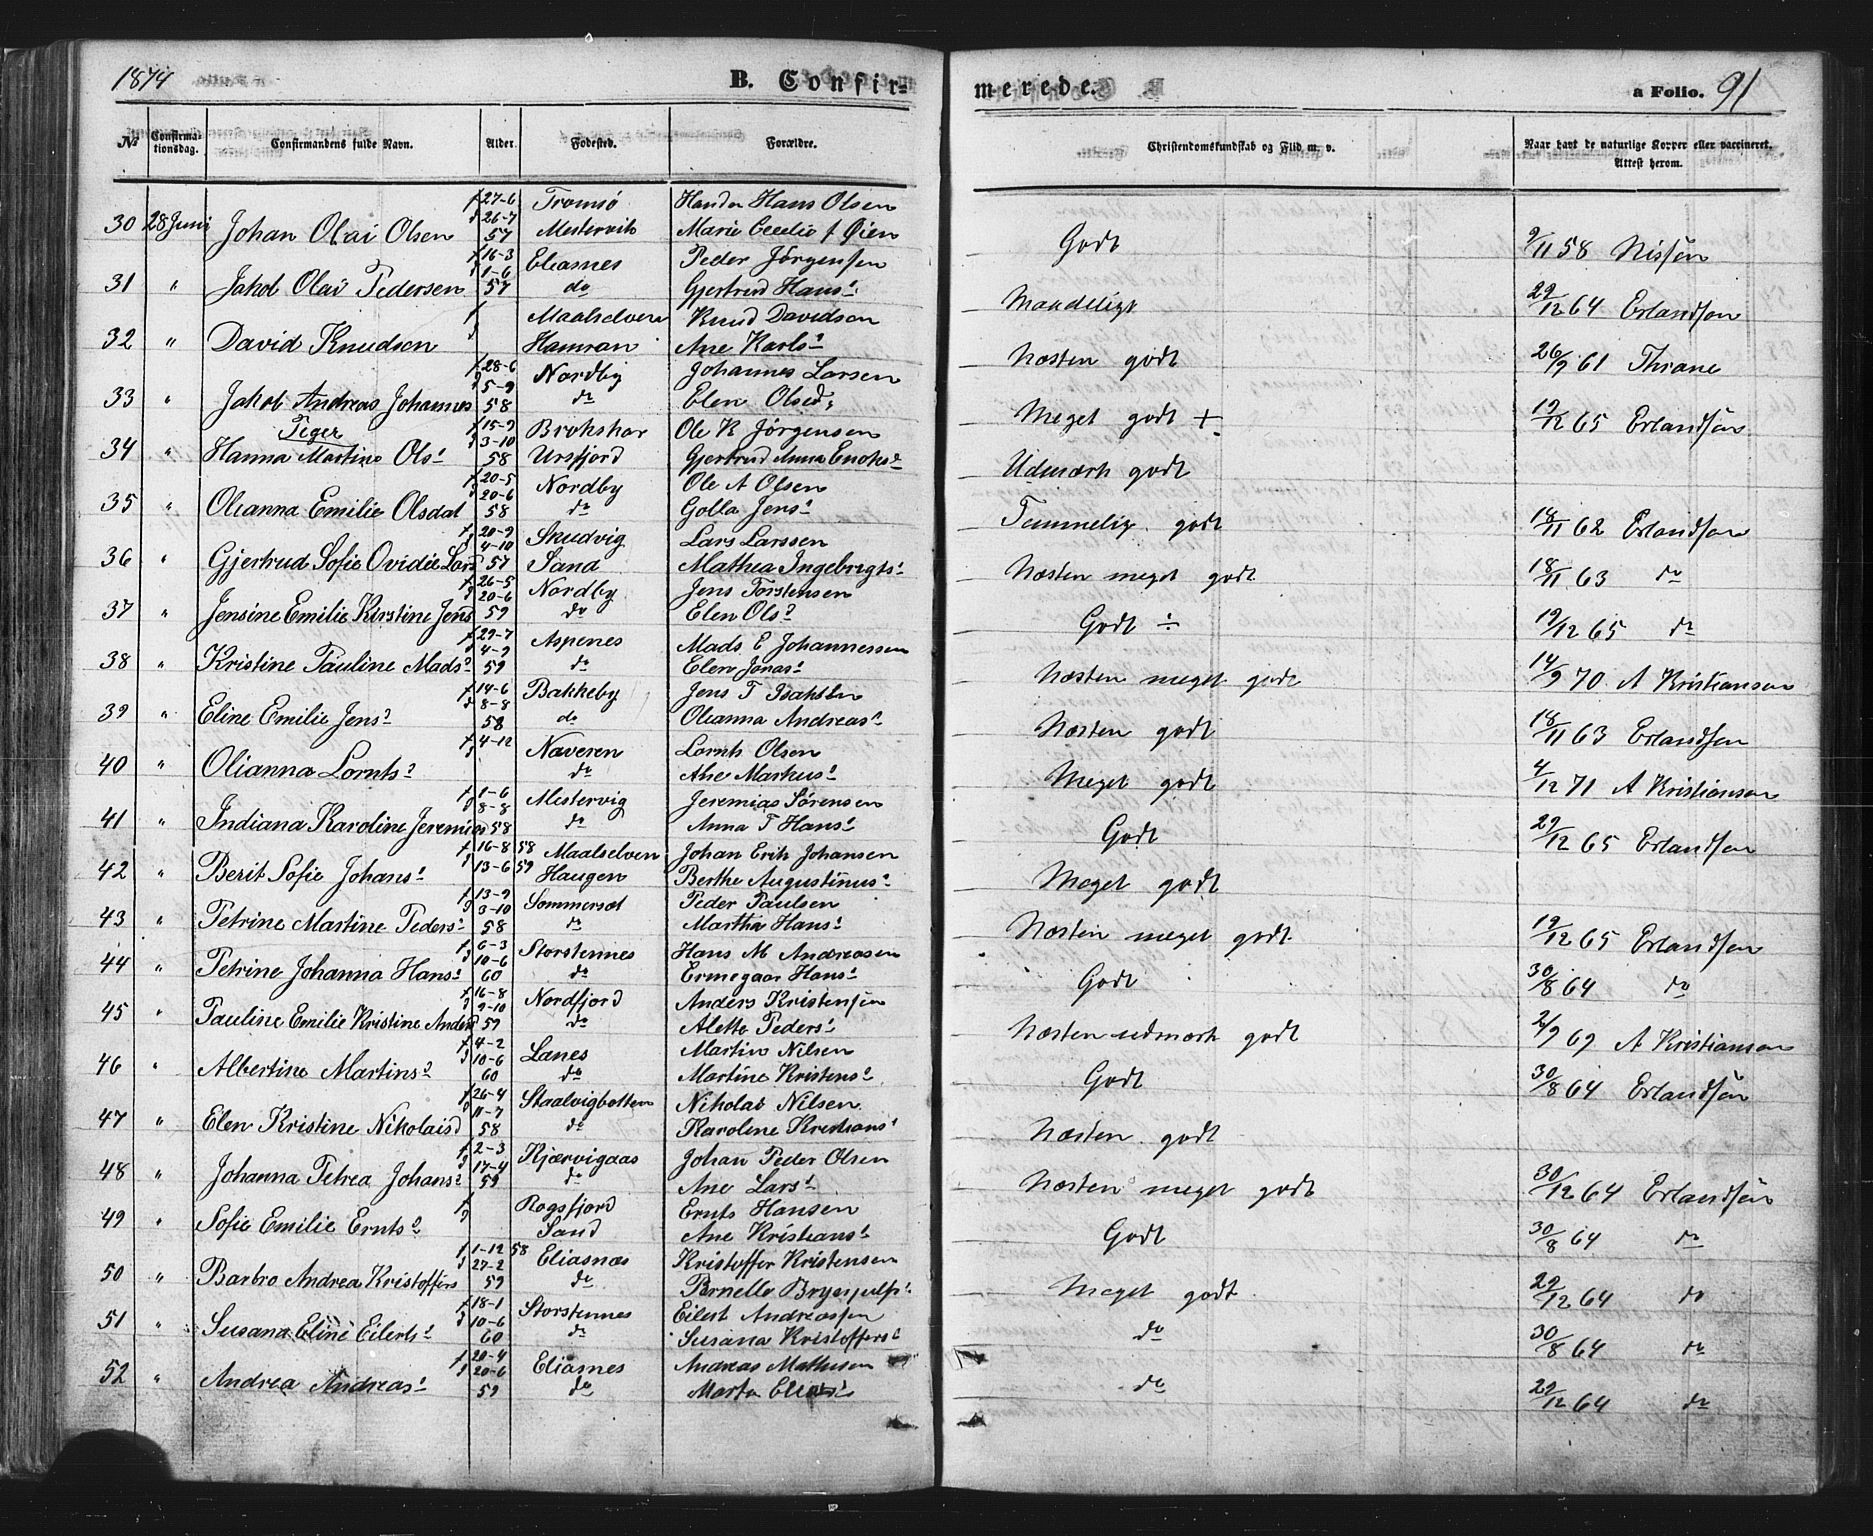 1874 B. Confir- merede. a Folio. 91
No Confirma-tionsdag. Confirmandens fulde Navn. Alder. Fødested. Forældre. Christendomskundskab og Flid m. v. Naar havt de naturlige Kopper eller vaccineret. Attest herom.
f 27-6 Tromsø Handm Hans Olsen
30 28 Juni Johan Olai Olsen d 26-7 57 Mestervik Marie Cecelie f Øien Godt 9/11 58 Nissen
f 16-3 Eliasnes Peder Jørgensen
31 " Jakob Olai Pedersen d 1-6 57 do Gjertrud Hans d. Maadeligt 29/12 64 Erlandsen
f Maalselven Knud Davidsen
32 " David Knudsen d Hamran Ane Karls d Næsten godt 26/9 61 Thrane
f 28-6 Nordby Johannes Larsen
33 " Jakob Andreas Johannes d 5-9 58 do Elen Olsd. Meget godt + 19/12 65 Erlandsen
Teger f 15-9 Brokskar Ole K Jørgensen
34 " Hanna Martine Ols d d 3-10 58 Ursfjord Gjertrud Anna Enoks d Udmærk godt
f 20-5 Nordby Ole A Olsen
35 " Olianna Emilie Olsdat d 20-6 58 do Golla Jens d Temmelig godt 18/11 62 Erlandsen
f 20-9 Skudvig Lars Larssen
36 " Gjertrud Sofie Ovidie Lars d 4-10 57 Sand Mathea Ingebrigts d Næsten meget godt 18/11 63 do
f 26-5 Nordby Jens Torstensen
37 " Jensine Emilie Kirstine Jens d 20-6 59 do Elen Ols d Godt ÷ 19/12 65 do
f 29-7 Aspenes Mads E Johannessen
38 " Kristine Pauline Mads d d 4-9 59 do Elen Jonas d Næsten meget godt 14/9 70 A Kristiansen
f 14-6 Bakkeby Jens T Isaksen
39 " Eline Emilie Jens d d 8-8 58 do Olianna Andreas d Næsten godt 18/11 63 Erlandsen
f 4-12 Naveren Lornts Olsen
40 " Olianna Lornts d d do Ane Markus d Meget godt 4/12 71 A Kristiansen
f 1-6 Mestervig Jeremias Sørensen
41 " Indiana Karoline Jeremias d 8-8 58 do Anna T Hans d Godt 29/12 65 Erlandsen
f 16-8 58 Maalselven Johan Erik Johansen
42 " Berit Sofie Johans d d 13-6 59 Haugen Berthe Augustinus d Meget godt
f 13-9 Sommersæt Peder Paulsen
43 " Petrine Martine Peders d d 3-10 58 do Martha Hans d Næsten meget godt 19/12 65 Erlandsen
f 6-3 Storstennes Hans M Andreasen
44 " Petrine Johanna Hans d d 10-6 60 do Ermegaar Hans d Godt 30/8 64 do
f 16-8 Nordfjord Anders Kristensen
45 " Pauline Emilie Kristine Anders d 9-10 59 do Alette Peders d Næsten udmærk godt 2/9 69 A Kristiansen
f 4-2 Lanes Martin Nilsen
46 " Albertine Martins d d 10-6 60 do Martine Kristens d Godt 30/8 64 Erlandsen
f 26-4 Staalvigbotten Nikolai Nilsen
47 " Elen Kristine Nikolaisd d 11-7 58 do Karoline Kristians d Næsten godt
f 2-3 Kjærvigaas Johan Peder Olsen
48 " Johanna Petrea Johans d d 17-4 59 do Ane Lars d Næsten meget godt 30/12 64 Erlandsen
f Rogsfjord Ernts Hansen
49 " Sofie Emilie Ernts d d Sand Ane Kristians d Godt 30/8 64 do
f 1-12 58 Eliasnæs Kristoffer Kristensen
50 " Barbro Andrea Kristoffers d 27-2 59 do Pernelle Meget godt 29/12 64 do
f 18-1 Storstennes Eilert Andreassen
51 " Susana Eline Eilerts d d 10-6 60 do Susana Kristoffers d do 30/8 64 do
f 20-4 Eliasnes Andreas Mathisen
52 " Andrea Andreas d d 20-6 59 do Marta Elias d do 29/12 64 do